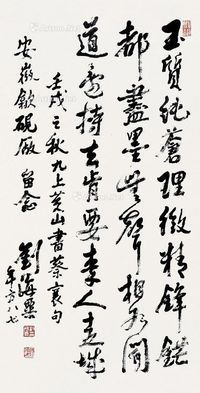 玉質純蒼理緻精鋒鋩
都盡墨無聲相如聞
道還持去肯要秦人十五城
壬戌之秋九上黃山書蔡襄句
安徽歙硯廠留念
劉海粟
年方八七